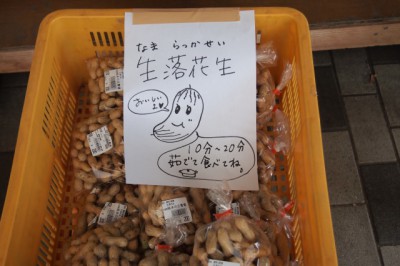 なま らっかせい
生落花生
おいしい
よ♥
10分~20分
茹でて食べてね。